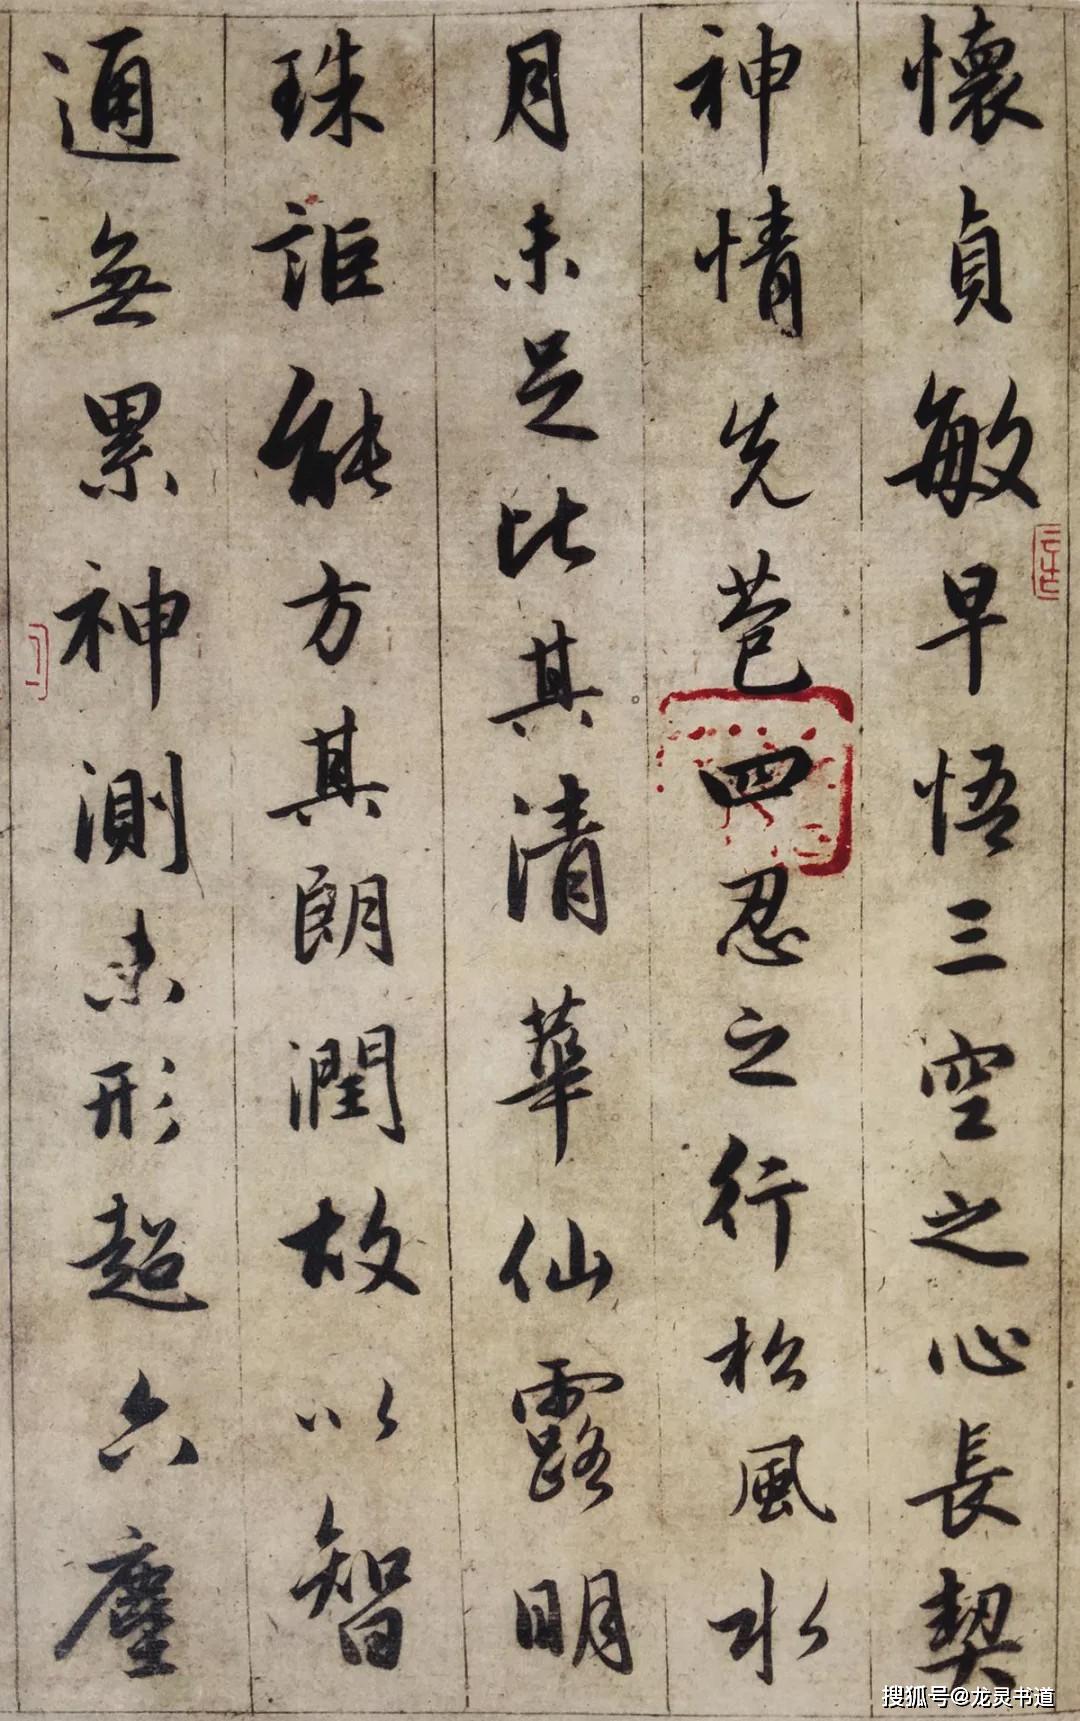 懷貞敏早悟三空之心長契
神情先苞四忍之行松風水
月未足比其清華仙露明
珠詎能方其朗潤故以智
通無累神測未形超六塵
搜狐号@龙灵书道